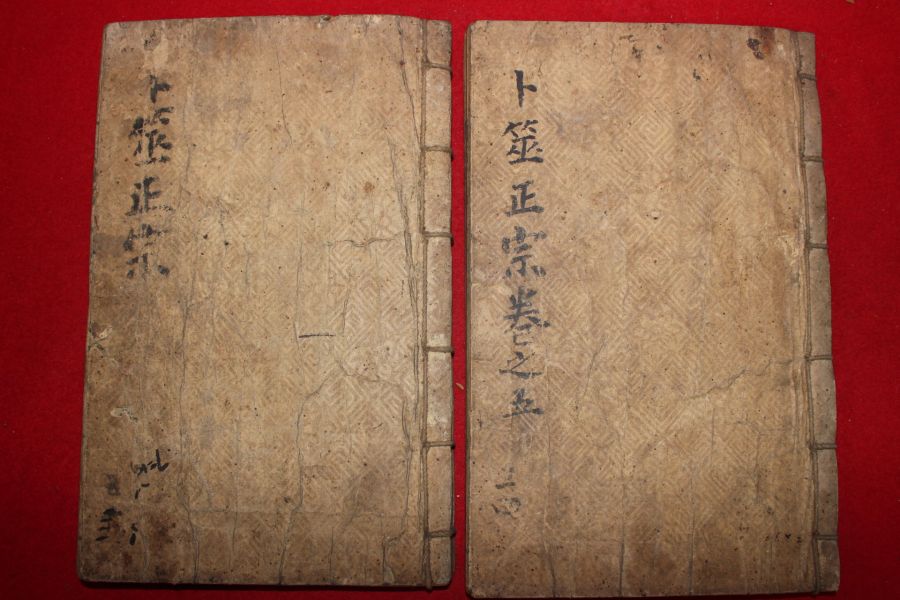 卜筮正宗
卜筮正宗卷之五